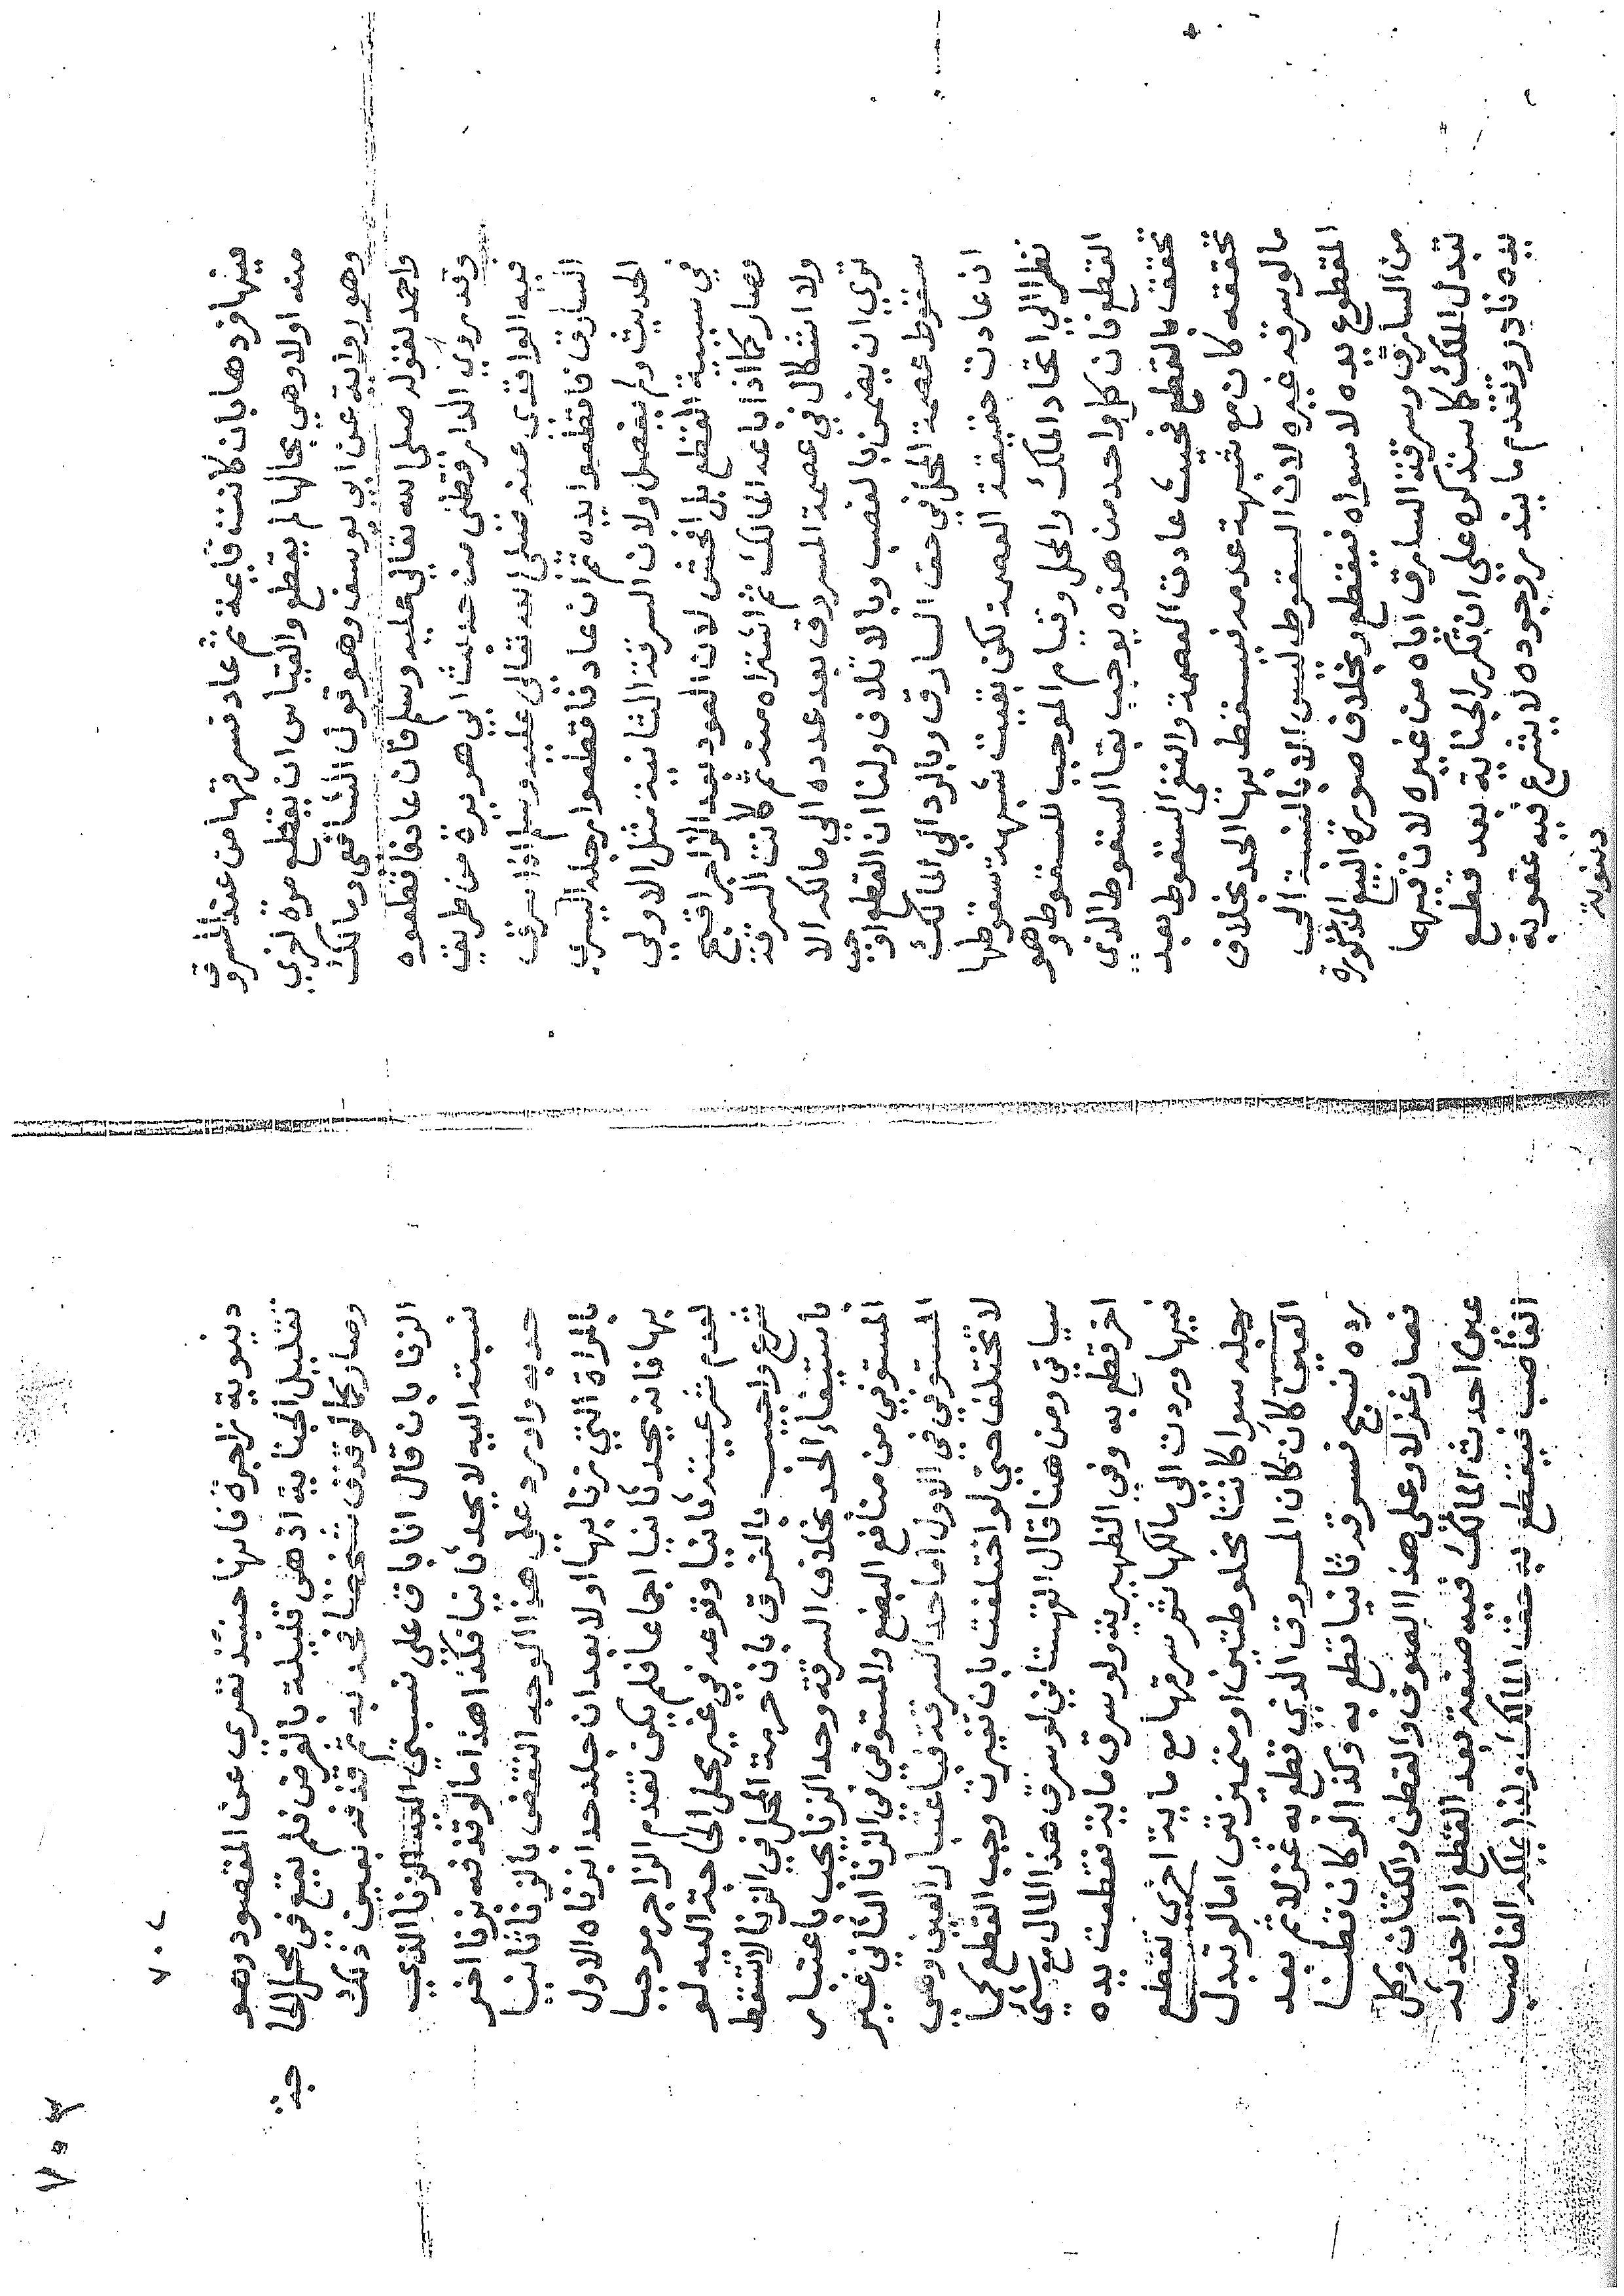 منها فردها بان كانت قايمة ثم عاد فسرقها من عند المسروق
منه اولا وهي بحالها لم يقطع والقياس ان يقطع مرة اخري
وهو رواية عن ابي يوسف وهو قول الشافعي ومالك
واحمد لقوله صلى الله تعالي عليه وسلم فان عاد فاقطعوه
وقد روي الدارقطني من حديث ابي هريرة من طريق
فيه الواقدي عنه صلى الله تعالى عليه وسلم اذا سرق
السارق فاقطعوا يده ثم ان عاد فاقطعوا رجله اليسري
الحديث ولم يفصل ولان السرقة الثانية مثل الاولي
في سببية القطع بل افحش لان العود بعد الزاجر اقبح
وصار كما اذا باعه المالك ثم اشتراه منه ثم كانت السرقة
ولا اشكال في عصمة المسروق بعد عدده الي مالكه الا
تري انه يضمن بالغصب وبالاتلاف ولنا ان القطع اوجب
سقوط عصمة المحل في حق السارق وبالرد الي المالك
ان عادت حقيقة العصمة لكن بقيت شبهة سقوطها
نظرا الي اتحاد الملك والمحل وقيام الموجب للسقوط وهو
القطع فان كل واحد من هذه يوجب بقا السقوط الذي
تحقق بالقطع فحيث عادت العصمة وانتفى السقوط بعد
تحققه كان مع شبهة عدمه فيسقط بها الحد بخلاف
مالو سرقه غيره لان السقوط ليس الا بالنسبة الى
المقطوع يده لا سواه فيقطع وبخلاف صورة البيع المذكورة
من السارق وسرقة السارق اياه من غيره لان فيها
تبدل الملك كما سنذكره علي ان تكرر الجناية بعد قطع
يده نادر وتقدم ما يندر وجوده لا يشرع فيه عقوبة
دينوية
٧٠٢
٧٠٢
دينوية زاجرة فانها حينئذ تعري عن المقصود وهو
تقليل الجناية اذ هي قليلة بالفرض فلم يقع في محل الحا
جة
وصار كما لو قذف شخصا فحد به ثم قذفه بعين ذلك
الزنا بان قال انا باق على نسبتي اليه الزنا الذي
نسبته اليه لا يحد ثانيا فكذا هذا مالو قذفه بزنا اخر
حد به واورد علي هذا الوجه النقض بالزنا ثانيا
بالمراة التي زنا بها اولا بعد ان جلد حدا بزناه الاول
بها فانه يحد ثانيا اجماعا فلم يكن تقدم الزاجر موجبا
لعدم شرعيته ثانيا وقوعه في غير محل الحاجة اليه لو
شرع واجيب بالفرق بان حرمة المحل في الزنا لا تسقط
باستيفاء الحد بخلاف السرقة وحد الزنا يجب باعتبار
المستوفي من منافع البضع والمستوفي في الزنا الثاني غير
المستوفي في الاول اما حد السرقة فباعتبار العين وهي
لا تختلف حتي لو اختلفت بان تغيرت وجب القطع كما
سياتي ومن هنا قال القهستاني لو سرق هذا المال مع شي
اخر قطع به وفي الظهيرية ولو سرق ماية فقطعت يده
فيها وردت الى مالكها ثم سرقها مع ماية اخرى تقطع
رجله سوا كانتا مخلوطتين او متميزتين اما لو تبدل
العين كان كان المسروق الذي قطع به غزلا ثم بعد
رده نسج فسرقه ثانيا قطع به وكذا لو كان قطنا
فصار غزلا وعلى هذا الصوف والقطن والكتان وكل
عين احدث المالك فيه صنعة بعد القطع لو احدثه
الغاصب فينقطع به حق المالك ولذا يملكه الغاصب